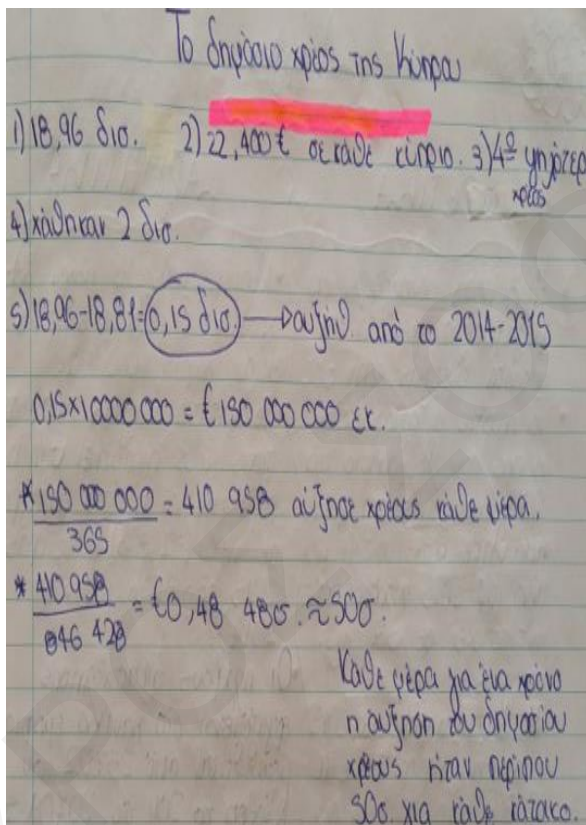 Το δημόσιο χρέος της Κύπρου
1) 18,96 δισ. 2) 22,400€ σε κάθε κύπριο. 3) 4º ψηλότερ
χρέος
4) χάθηκαν 2 δισ.
5) 18,96-18,81=0,15 δισ. → αυξήθ. από το 2014-2015
0,15x10000000 = €150 000 000 εκ.
*150 000 000 = 410 958 αύξησε χρέους κάθε μέρα.
365
*410 958 = €0,48 48σ. ≈ 50σ.
846 428
Κάθε μέρα για ένα χρόνο
η αύξηση του δημοσίου
χρέους ήταν περίπου
50σ. για κάθε κάτοικο.